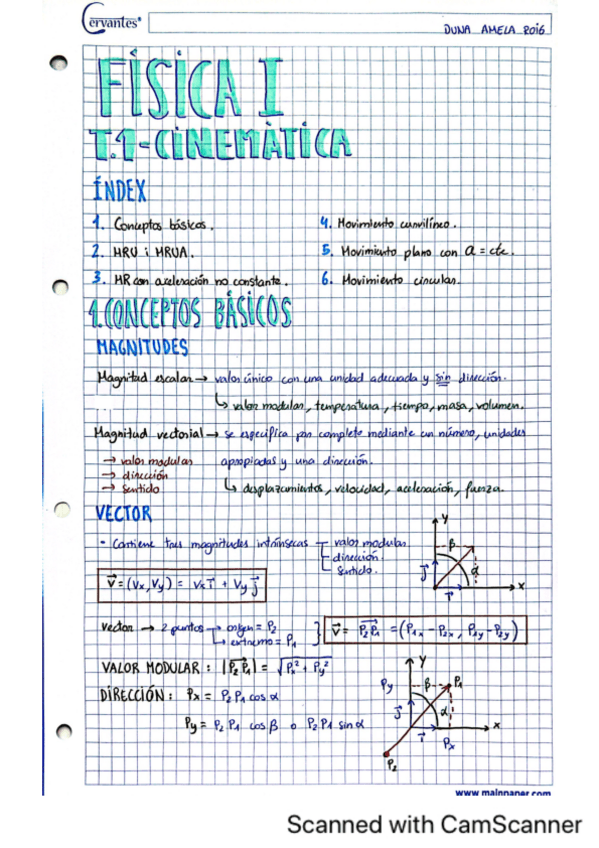 Cervantes®
DUNA AMELA ROIG
FÍSICA I
T.1-CINEMÀTICA
ÍNDEX
1. Conceptos básicos.
4. Movimiento curvilíneo.
2. MRU i MRUA.
5. Movimiento plano con a = cte.
3. MR con aceleración no constante.
6. Movimiento circular.
1. CONCEPTOS BÁSICOS
MAGNITUDES
Magnitud escalar → valor único con una unidad adecuada y sin dirección.
↳ valor modular, temperatura, tiempo, masa, volumen.
Magnitud vectorial → se especifica por completo mediante un número, unidades
→ valor modular apropiadas y una dirección.
→ dirección
→ sentido ↳ desplazamientos, velocidad, aceleración, fuerza.
VECTOR
- Contiene tres magnitudes intrínsecas valor modular.
dirección.
sentido.
y
β
α
j
i
x
v⃗ = (Vx, Vy) = Vx i⃗ + Vy j⃗
Vector → 2 puntos → origen = P2
↳ extremo = P1
v⃗ = P2P1 = (P1x - P2x, P1y - P2y)
VALOR MODULAR: |P2P1| = √Px² + Py²
DIRECCIÓN: Px = P2P1 cos α
Py = P2P1 cos β o P2P1 sin α
y
Py
β
P1
j
α
i
Px
x
P2
www.mainpaper.com
Scanned with CamScanner